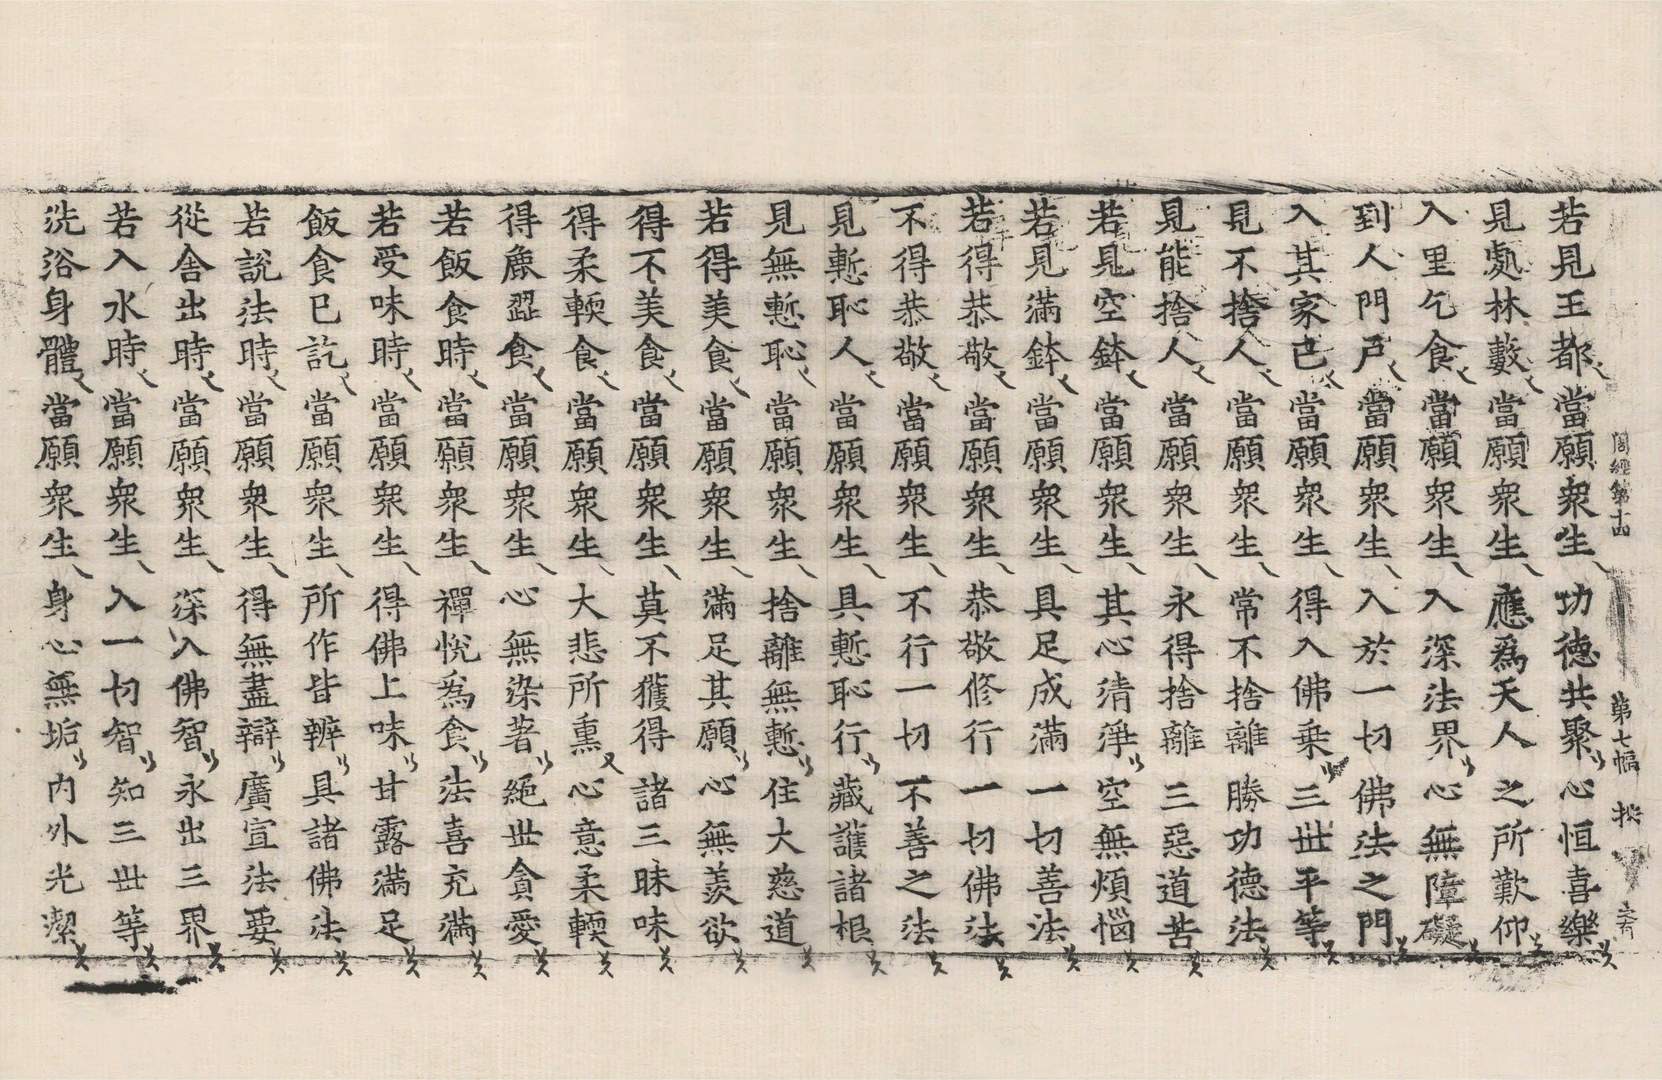 周經第十四　第七幅
若見王都　當願衆生　功德共聚　心恒喜樂
見處林藪　當願衆生　應爲天人　之所歎仰
入里乞食　當願衆生　入深法界　心無障礙
到人門戶　當願衆生　入於一切　佛法之門
入其家已　當願衆生　得入佛乗　三世平等
見不捨人　當願衆生　常不捨離　勝功德法
見能捨人　當願衆生　永得捨離　三惡道苦
若見空鉢　當願衆生　其心清淨　空無煩惱
若見滿鉢　當願衆生　具足成滿　一切善法
若得恭敬　當願衆生　恭敬修行　一切佛法
不得恭敬　當願衆生　不行一切　不善之法
見慙恥人　當願衆生　具慙恥行　藏護諸根
見無慙恥　當願衆生　捨離無慙　住大慈道
若得美食　當願衆生　滿足其願　心無羡欲
得不美食　當願衆生　莫不獲得　諸三昧味
得柔輭食　當願衆生　大悲所熏　心意柔輭
得麁澀食　當願衆生　心無染著　絕世貪愛
若飯食時　當願衆生　禪悅爲食　法喜充滿
若受味時　當願衆生　得佛上味　甘露滿足
飯食已訖　當願衆生　所作皆辨　具諸佛法
若説法時　當願衆生　得無盡辯　廣宣法要
從舍出時　當願衆生　深入佛智　永出三界
若入水時　當願衆生　入一切智　知三世等
洗浴身體　當願衆生　身心無垢　內外光潔